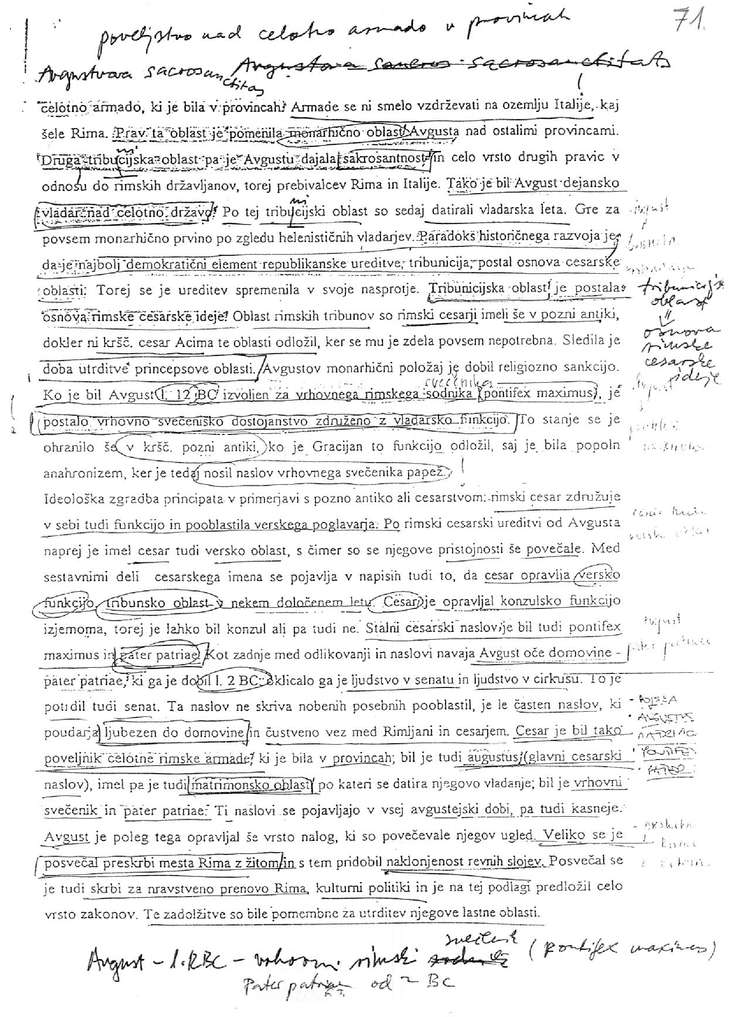 71.
poveljstvo nad celotno armado v provincah
Avgustova sacrosanctitas
celotno armado, ki je bila v provincah. Armade se ni smelo vzdrževati na ozemlju Italije, kaj
šele Rima. Prav ta oblast je pomenila monarhično oblast Avgusta nad ostalimi provincami.
Druga tribucijska oblast pa je Avgustu dajala sakrosantnost in celo vrsto drugih pravic v
odnosu do rimskih državljanov, torej prebivalcev Rima in Italije. Tako je bil Avgust dejansko
vladar nad celotno državo! Po tej tribucijski oblast so sedaj datirali vladarska leta. Gre za
povsem monarhično prvino po zgledu helenističnih vladarjev. Paradoks historičnega razvoja je,
da je najbolj demokratični element republikanske ureditve, tribunicija, postal osnova cesarske
oblasti. Torej se je ureditev spremenila v svoje nasprotje. Tribunicijska oblast je postala
osnova rimske cesarske ideje! Oblast rimskih tribunov so rimski cesarji imeli še v pozni antiki,
dokler ni kršč. cesar Acima te oblasti odložil, ker se mu je zdela povsem nepotrebna. Sledila je
doba utrditve princepsove oblasti. Avgustov monarhični položaj je dobil religiozno sankcijo.
svečenika
Ko je bil Avgust l. 12 BC izvoljen za vrhovnega rimskega sodnika (pontifex maximus), je
postalo vrhovno svečenisko dostojanstvo združeno z vladarsko funkcijo. To stanje se je
ohranilo še v kršč. pozni antiki, ko je Gracijan to funkcijo odložil, saj je bila popoln
anahronizem, ker je tedaj nosil naslov vrhovnega svečenika papež.
tribunicijska
oblast
osnova
rimske
cesarske
ideje
Ideološka zgradba principata v primerjavi s pozno antiko ali cesarstvom: rimski cesar združuje
v sebi tudi funkcijo in pooblastila verskega poglavarja. Po rimski cesarski ureditvi od Avgusta
naprej je imel cesar tudi versko oblast, s čimer so se njegove pristojnosti še povečale. Med
sestavnimi deli cesarskega imena se pojavlja v napisih tudi to, da cesar opravlja versko
funkcijo, tribunsko oblast v nekem določenem letu. Cesar je opravljal konzulsko funkcijo
izjemoma, torej je lahko bil konzul ali pa tudi ne. Stalni cesarski naslov je bil tudi pontifex
maximus in pater patriae. Kot zadnje med odlikovanji in naslovi navaja Avgust oče domovine -
pater patriae, ki ga je dobil l. 2 BC. Sklicalo ga je ljudstvo v senatu in ljudstvo v cirkusu. To je
potrdil tudi senat. Ta naslov ne skriva nobenih posebnih pooblastil, je le časten naslov, ki
poudarja ljubezen do domovine in čustveno vez med Rimljani in cesarjem. Cesar je bil tako
poveljnik celotne rimske armade, ki je bila v provincah; bil je tudi augustus (glavni cesarski
naslov), imel pa je tudi matrimonsko oblast po kateri se datira njegovo vladanje; bil je vrhovni
svečenik in pater patriae. Ti naslovi se pojavljajo v vsej avgustejski dobi, pa tudi kasneje.
Avgust je poleg tega opravljal še vrsto nalog, ki so povečevale njegov ugled. Veliko se je
posvečal preskrbi mesta Rima z žitom in s tem pridobil naklonjenost revnih slojev. Posvečal se
je tudi skrbi za nravstveno prenovo Rima, kulturni politiki in je na tej podlagi predložil celo
vrsto zakonov. Te zadolžitve so bile pomembne za utrditev njegove lastne oblasti.
Avgust – 12BC – vrhovni rimski svečenik (pontifex maximus)
Pater patriae od 2 BC